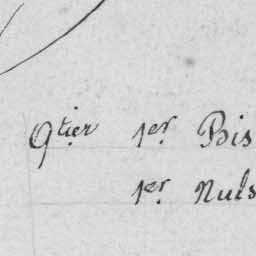 9tier 1er Bis
1er Nuls